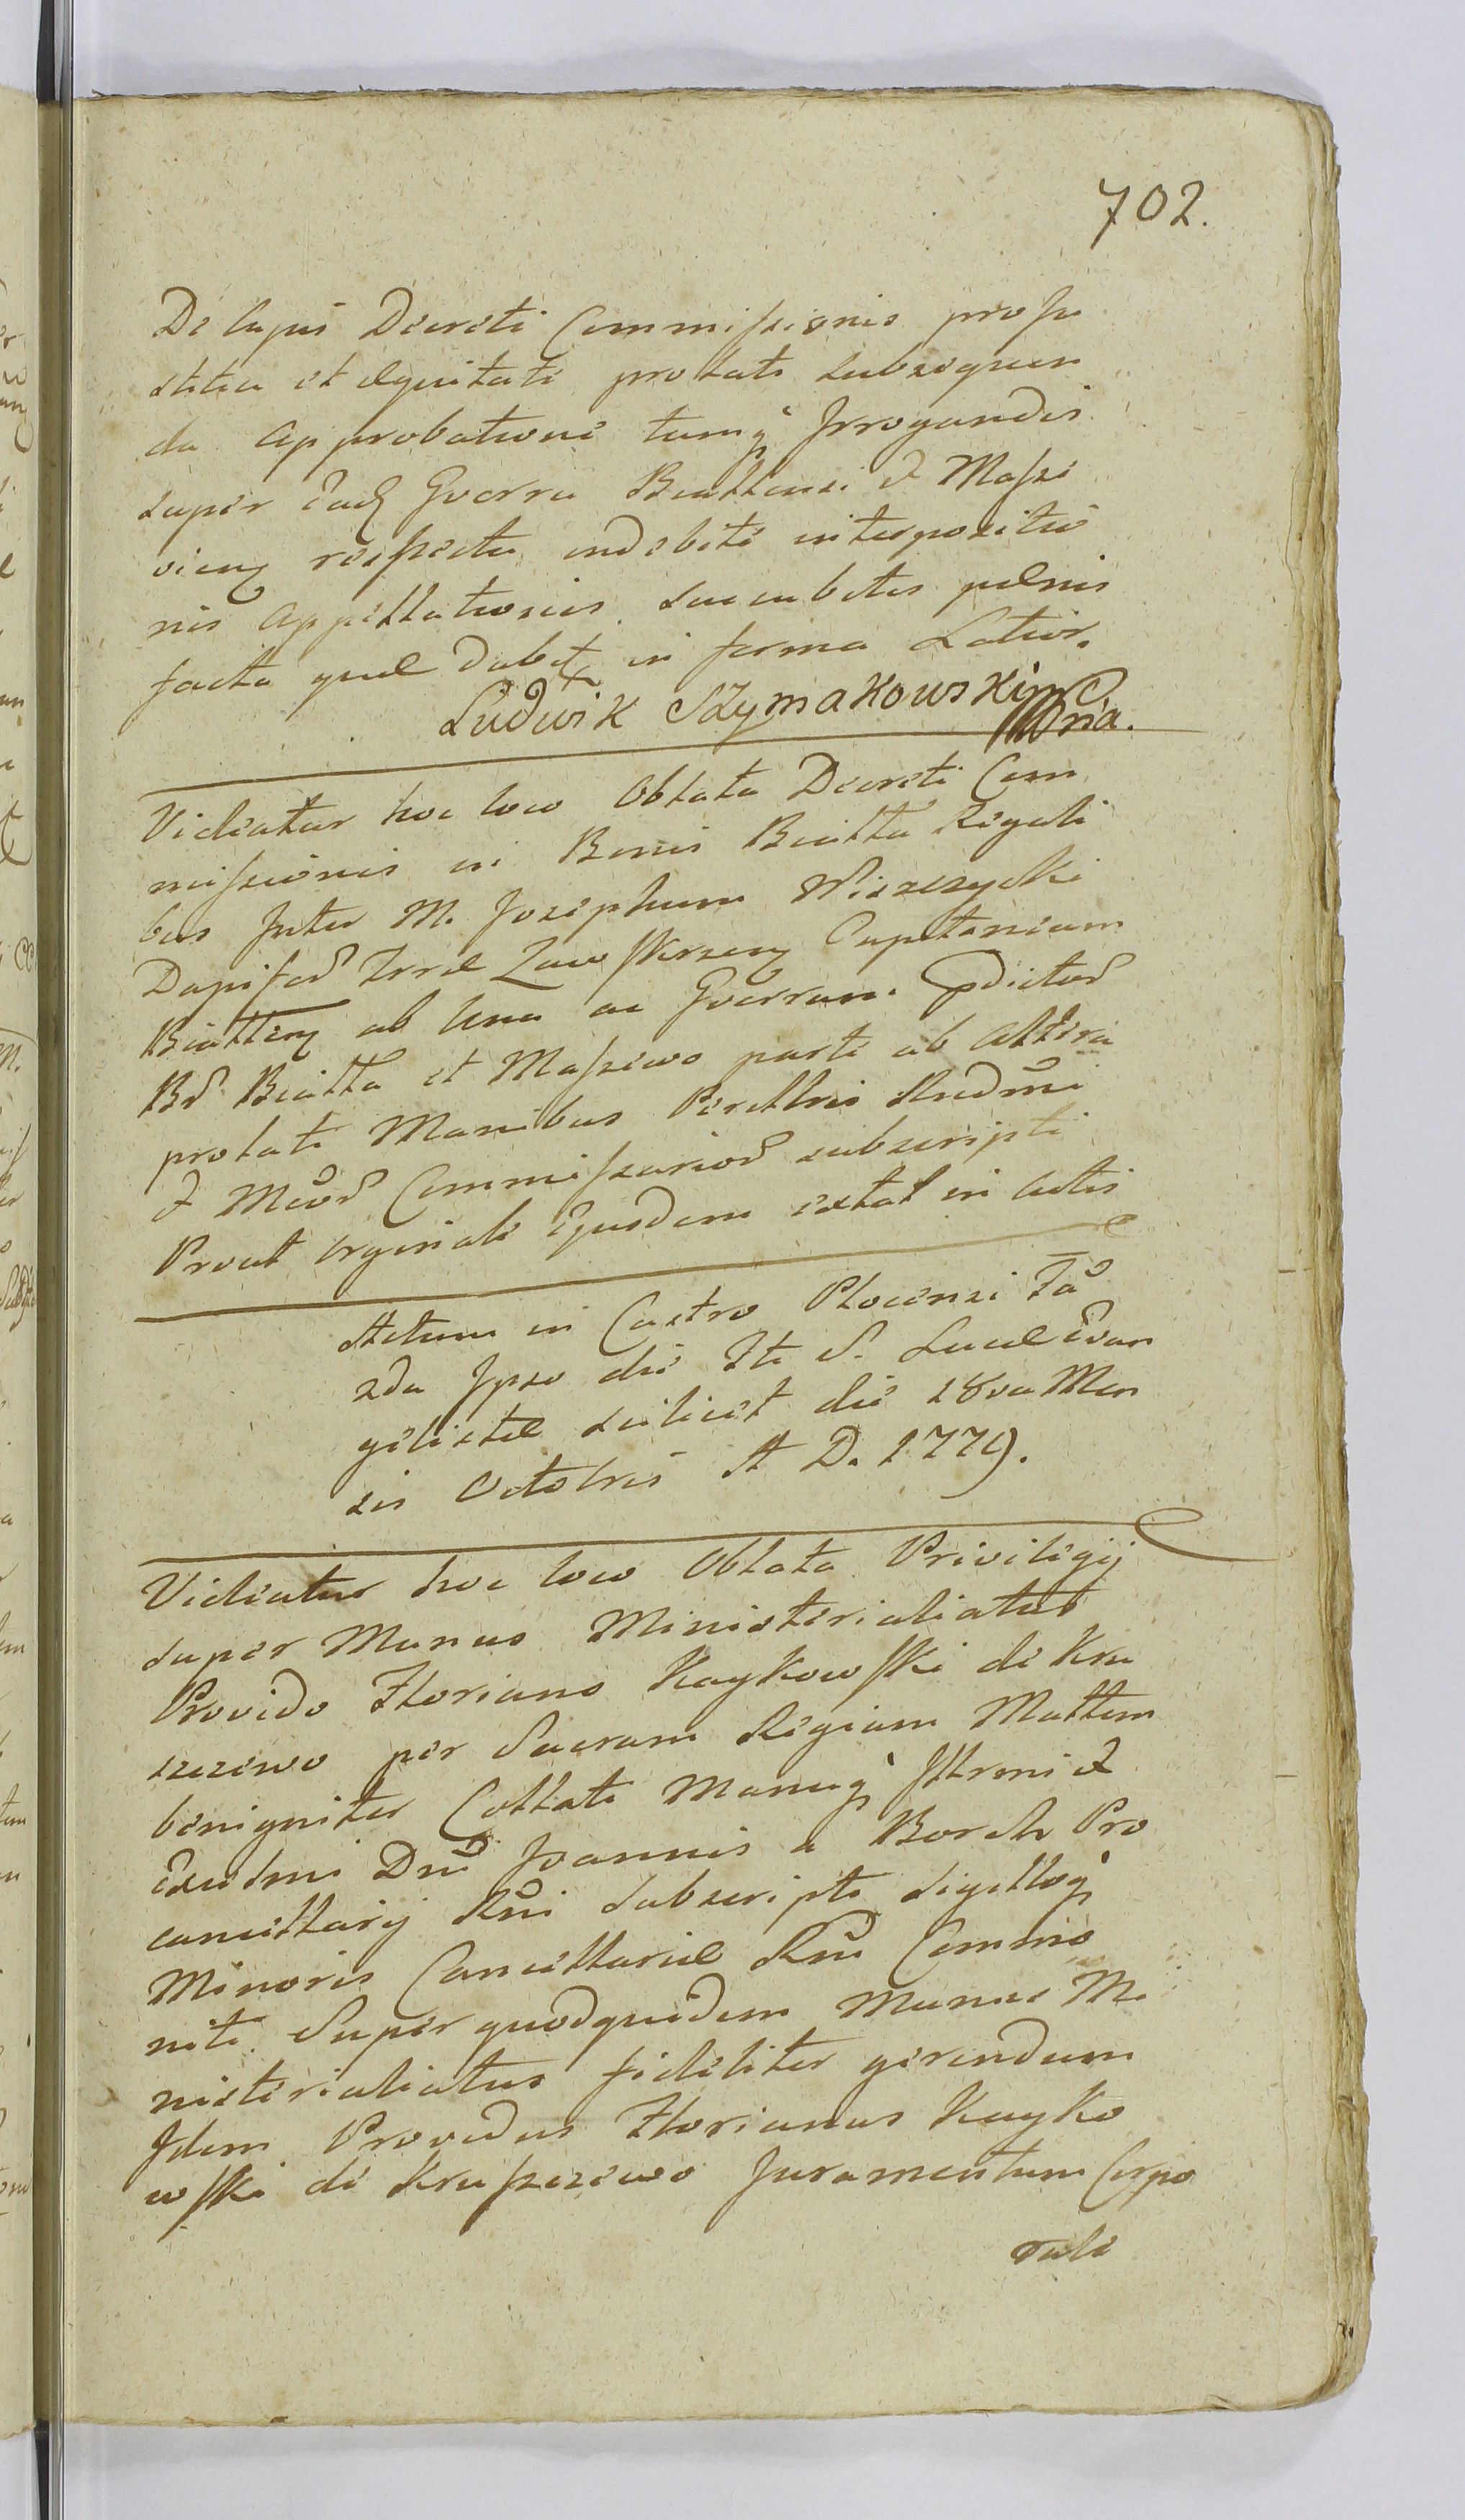 702.
De cujus Decreti Commissionis pro Ju
stitia et Aequitate prolati subsequen
da Approbatione tumq Irrogandis
super eadq Gverra Biallensi & Massze
vieng respectu indebitè interpositio
nis Appellationis succubitis paenis
facta quae dabetq in forma Latior.
Ludwik Szymakowski mpria.
Videatur hoc loco Oblata Decreti Com
missionis in Bonis Bialla Regali
bus Inter M. Josephum Wiszczycki
Dapiferd Trrae Zawskrzeng Capitaneum
Bialleng ab Una ac Gverram pdictord
Bd Bialla et Maszewo parte ab Altera
prolati Manibus Perillris Rndmi
& Mcord Commissariord subscripti
Prout Orginale Ejusdem extat in Actis
Actum in Castro Plocensi Fa
2da Ipso die Fti S. Lucae Evan
gelistae scilicet die 18va Men
sis Octobris A D. 1779.
Videatur hoc loco Oblata Privilegij
super Munus Ministerialiatus
Provido Floriano Kaykowski de Kru
szczewo per Sacram Regiam Mattem
benigniter Collati Manuq Illrmi &
Excelmi Dni Joannis a Borch Pro
cancellarij Rni Subscripti Sigilloq
Minoris Cancellariae Rni Commu
niti. Super quodquidem Munus Mi
nisterialiatus fideliter gerendum
Idem Providus Florianus Kayko
wski de Kruszczewo Juramentum Corpo
rale